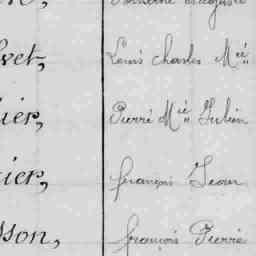 vet, Louis Charles Mie
ier, Pierre Mie Julien
ier, françois Jean
sson, françois Pierre